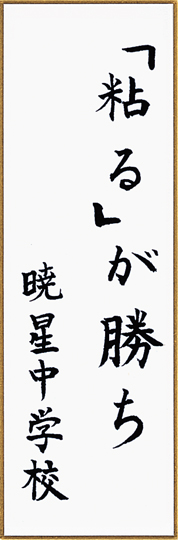 「粘る」が勝ち
暁星中学校